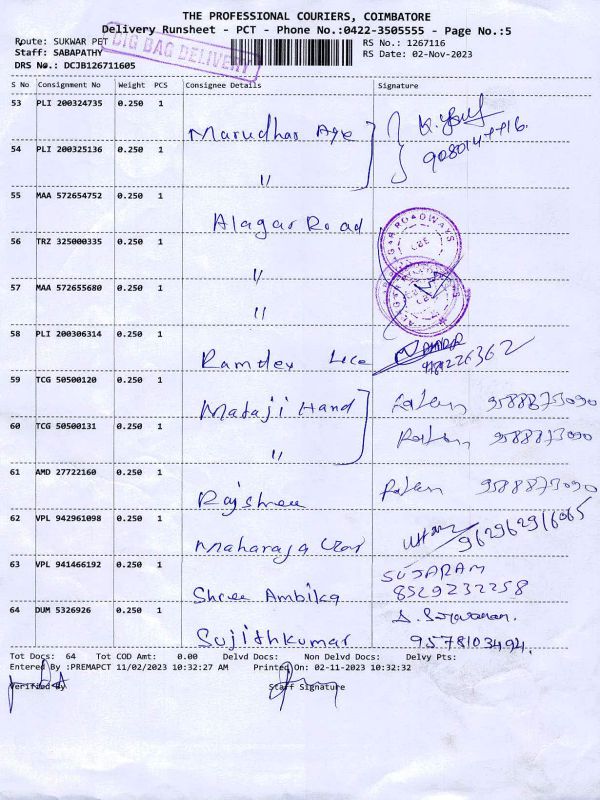 THE PROFESSIONAL COURIERS, COIMBATORE
Delivery Runsheet - PCT - Phone No.:0422-3505555 - Page No.:5
Route: SUKWAR PET
BIG BAG DELIVERY
RS No.: 1267116
Staff: SABAPATHY
RS Date: 02-Nov-2023
DRS No.: DCJB126711605
S No Consignment No Weight PCS Consignee Details Signature
53 PLI 200324735 0.250 1 Marudhar
54 PLI 200325136 0.250 1 "
55 MAA 572654752 0.250 1 Alagar Road
ROADWAYS
56 TRZ 325000335 0.250 1 "
57 MAA 572655680 0.250 1 "
58 PLI 200306314 0.250 1 Ramdev
59 TCG 50500120 0.250 1 Mataji Hand
60 TCG 50500131 0.250 1 " Ratan
61 AMD 27722160 0.250 1 Rajshree Ratan
62 VPL 942961098 0.250 1 Maharaja
63 VPL 941466192 0.250 1 Shree Ambika SUJARAM
8529232258
64 DUM 5326926 0.250 1 Sujithkumar
9578103494.
Tot Docs: 64 Tot COD Amt: 0.00 Delvd Docs: Non Delvd Docs: Delvy Pts:
Entered By :PREMAPCT 11/02/2023 10:32:27 AM Printed On: 02-11-2023 10:32:32
Verified By Staff Signature